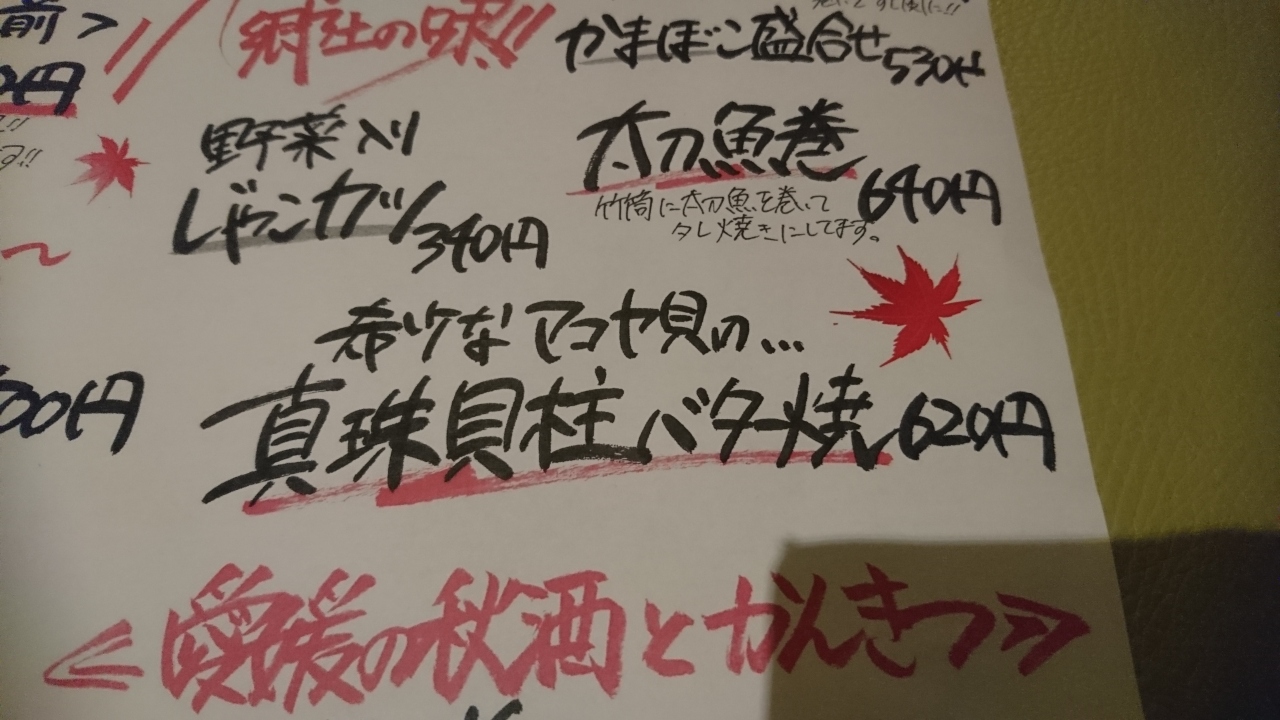 前>
円
郷土の味!!
かまぼこ盛合せ
530円
野菜入り
じゃこカツ
340円
太刀魚巻
640円
竹筒に太刀魚を巻いて
タレ焼きにしてます。
希少なアコヤ貝の...
真珠貝柱バター焼
620円
00円
≪愛媛の秋酒とかんきつ≫